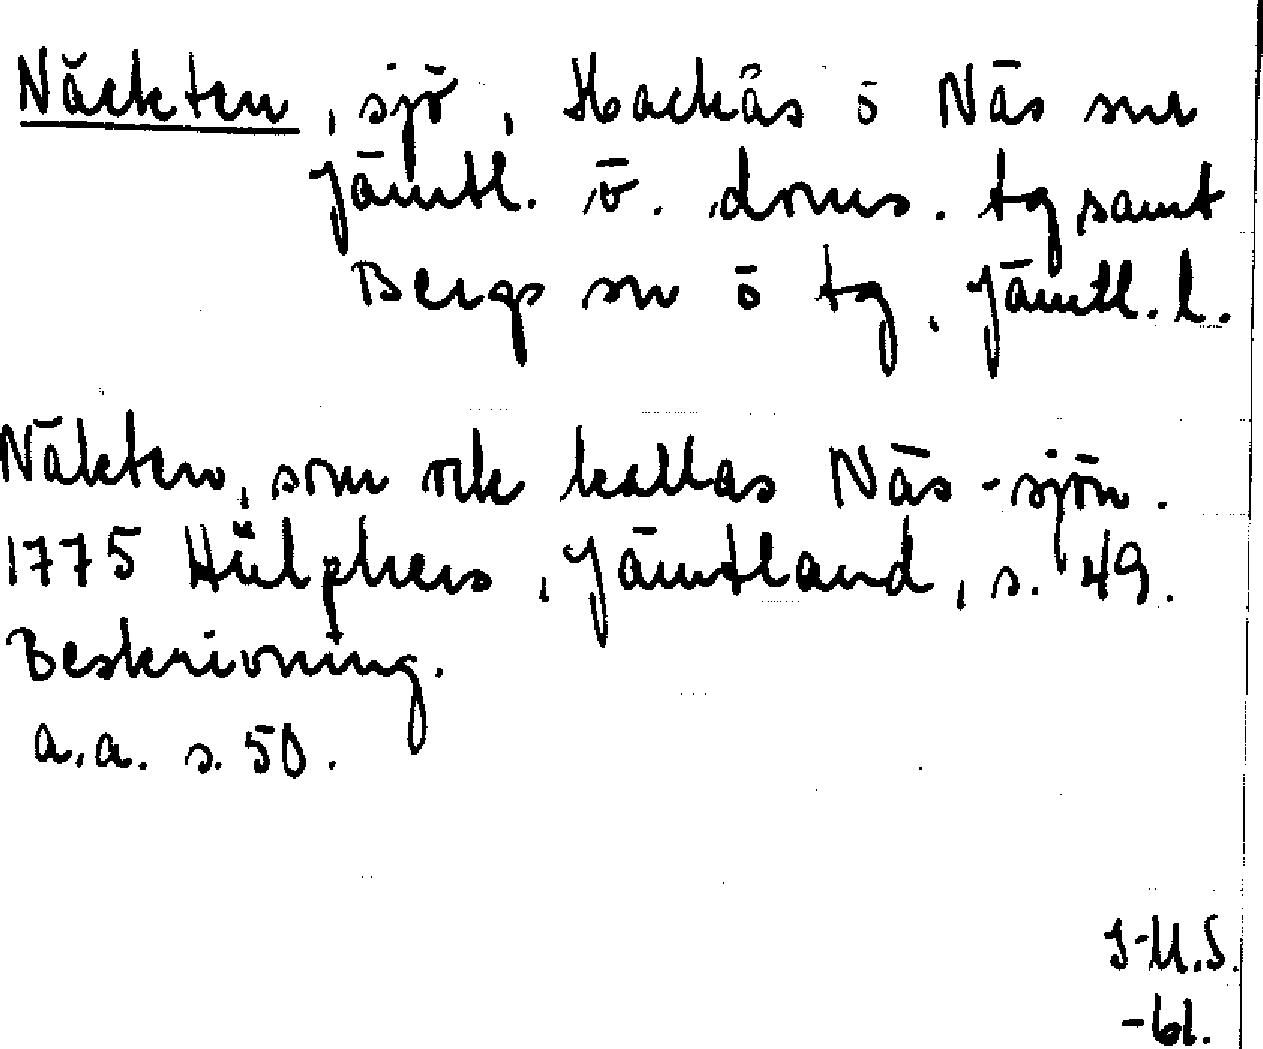 Näckten, sjö, Hackås o Näs snr
Jämtl. v. doms. tg samt
Bergs sn o tg, Jämtl. l.
Näkten, som ock kallas Näs-sjön.
1775 Hülphers, Jämtland, s. 49.
Beskrivning.
a.a. s. 50.
I-M.S.
-61.